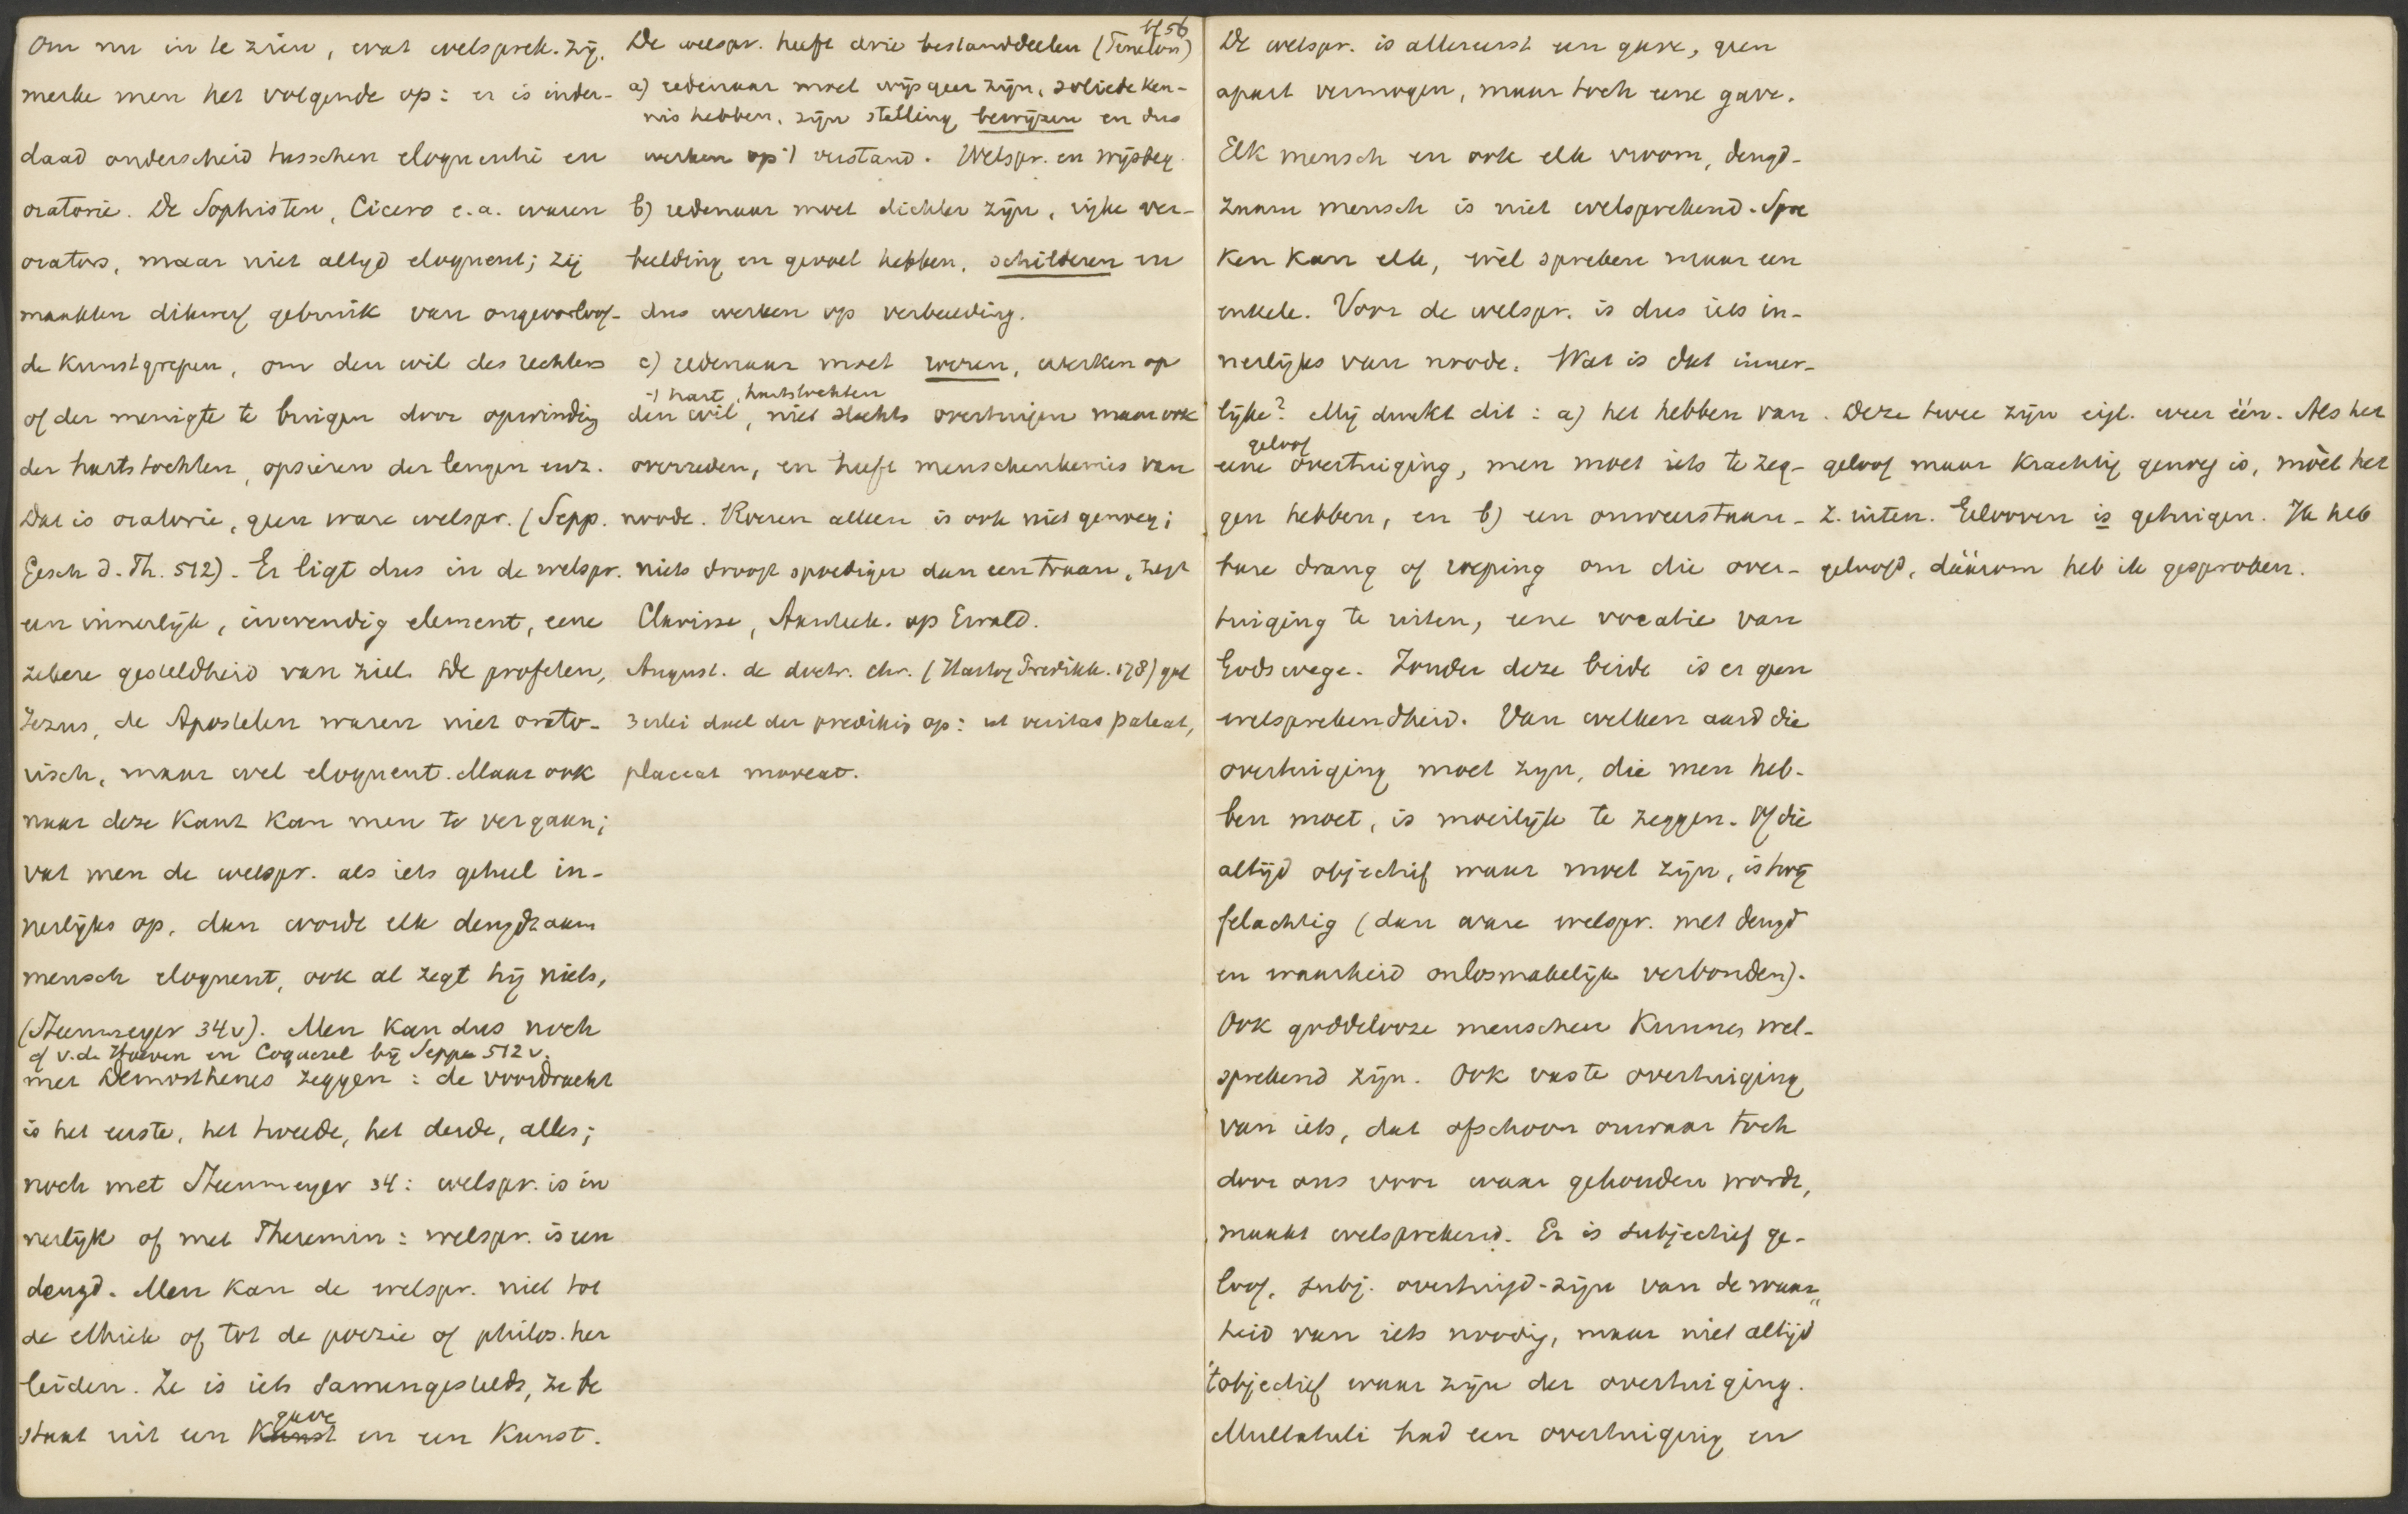 Om nu in te zien, wat welsprek. zij,
merke men het volgende op: er is inder-
daad onderscheid tusschen eloquentie en
oratorie. De Sophisten, Cicero e.a. waren
orators, maar niet altijd eloquent; zij
maakten dikwerf gebruik van ongeoorloof-
de kunstgrepen, om den wil des rechters
of der menigte te buigen door opwinding
der hartstochten, opsieren der leugen enz.
Dat is oratorie, geen ware welspr. (Sepp.
Gesch d. Th. 512). Er ligt dus in de welspr.
een innerlijk, inwendig element, eene
zekere gesteldheid van ziel. De profeten,
Jezus, de Apostelen waren niet orato-
risch, maar wel eloquent. Maar ook
naar deze kant kan men te ver gaan;
vat men de welspr. als iets geheel in-
nerlijks op, dan wordt elk deugdzaam
mensch eloquent, ook al zegt hij niets,
(Steinmeyer 34v). Men kan dus noch
cf v.d. Hoeven en Coquerel bij Sepp 512 v.
met Demosthenes zeggen: de voordracht
is het eerste, het tweede, het derde, alles;
noch met Steinmeyer 34: welspr. is in
nerlijk of met Theremin: welspr. is een
deugd. Men kan de welspr. niet tot
de ethiek of tot de poezie of philos. her
leiden. Ze is iets samengestelds, ze be
gave
staat uit een kunst en een kunst.
bl 56
De welspr. heeft drie bestanddeelen (Fenelon)
a) redenaar moet wijsgeer zijn, soliede ken-
nis hebben, zijn stelling bewijzen en dus
werken op 't verstand. Welspr. en wijsbeg.
b) redenaar moet dichter zijn, rijke ver-
beelding en gevoel hebben, schilderen en
dus werken op verbeelding.
c) redenaar moet roeren, werken op
't hart, hartstochten
den wil, niet slechts overtuigen maar ook
overreden, en heeft menschenkennis van
noode. Roeren alleen is ook niet genoeg;
niets droogt spoediger dan een traan, zegt
Clarisse, Aanteek. op Ewald.
August. de doctr. chr. (Hartog Predikk. 178) gaf
3erlei doel der prediking op: ut veritas pateat,
placeat moveat.
De welspr. is allereerst een gave, geen
apart vermogen, maar toch eene gave.
Elk mensch en ook elk vroom, deugd-
zaam mensch is niet welsprekend. Spre
ken kan elk, wèl spreken maar een
enkele. Voor de welspr. is dus iets in-
nerlijks van noode. Wat is dat inner-
lijke? Mij dunkt dit: a) het hebben van
geloof
eene overtuiging, men moet iets te zeg-
gen hebben, en b) een onweerstaan-
bare drang of roeping om die over-
tuiging te uiten, eene vocatie van
Godswege. Zonder deze beide is er geen
welsprekendheid. Van welken aard die
overtuiging moet zijn, die men heb-
ben moet, is moeilijk te zeggen. Of die
altijd objectief waar moet zijn, is twij
felachtig (dan ware welspr. met deugd
en waarheid onlosmakelijk verbonden).
Ook goddelooze menschen kunnen wel-
sprekend zijn. Ook vaste overtuiging
van iets, dat ofschoon onwaar toch
door ons voor waar gehouden wordt,
maakt welsprekend. Er is subjectief ge-
loof, subj. overtuigd-zijn van de waar„
heid van iets noodig, maar niet altijd
't objectief waar zijn der overtuiging.
Multatuli had een overtuiging en
. Deze twee zijn eigl. weer één. Als het
geloof maar krachtig genoeg is, moèt het
z. uiten. Gelooven is getuigen. Ik heb
geloofd, dáárom heb ik gesproken.